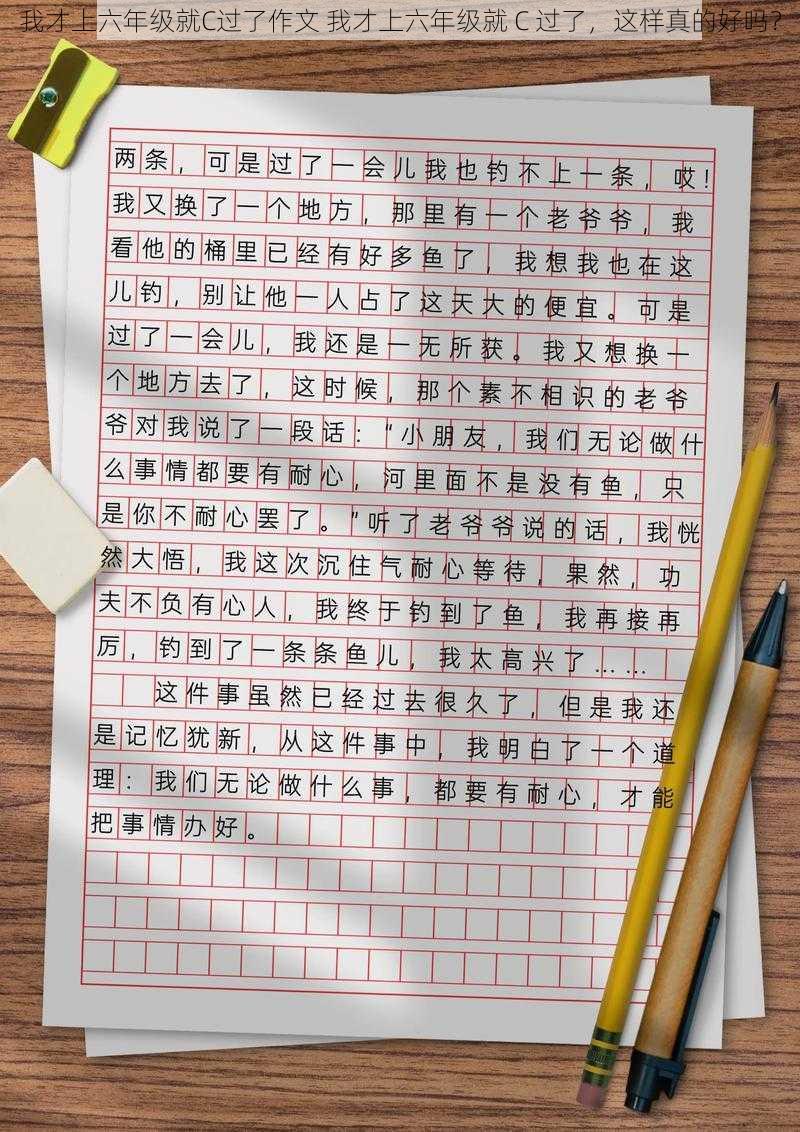 我才上六年级就C过了作文 我才上六年级就 C 过了，这样真的好吗？
两条，可是过了一会儿我也钓不上一条，哎！
我又换了一个地方，那里有一个老爷爷，我
看他的桶里已经有好多鱼了，我想我也在这
儿钓，别让他一人占了这天大的便宜。可是
过了一会儿，我还是一无所获。我又想换一
个地方去了，这时候，那个素不相识的老爷
爷对我说了一段话：“小朋友，我们无论做什
么事情都要有耐心，河里面不是没有鱼，只
是你不耐心罢了。”听了老爷爷说的话，我恍
然大悟，我这次沉住气耐心等待，果然，功
夫不负有心人，我终于钓到了鱼，我再接再
厉，钓到了一条条鱼儿，我太高兴了……
这件事虽然已经过去很久了，但是我还
是记忆犹新，从这件事中，我明白了一个道
理：我们无论做什么事，都要有耐心，才能
把事情办好。